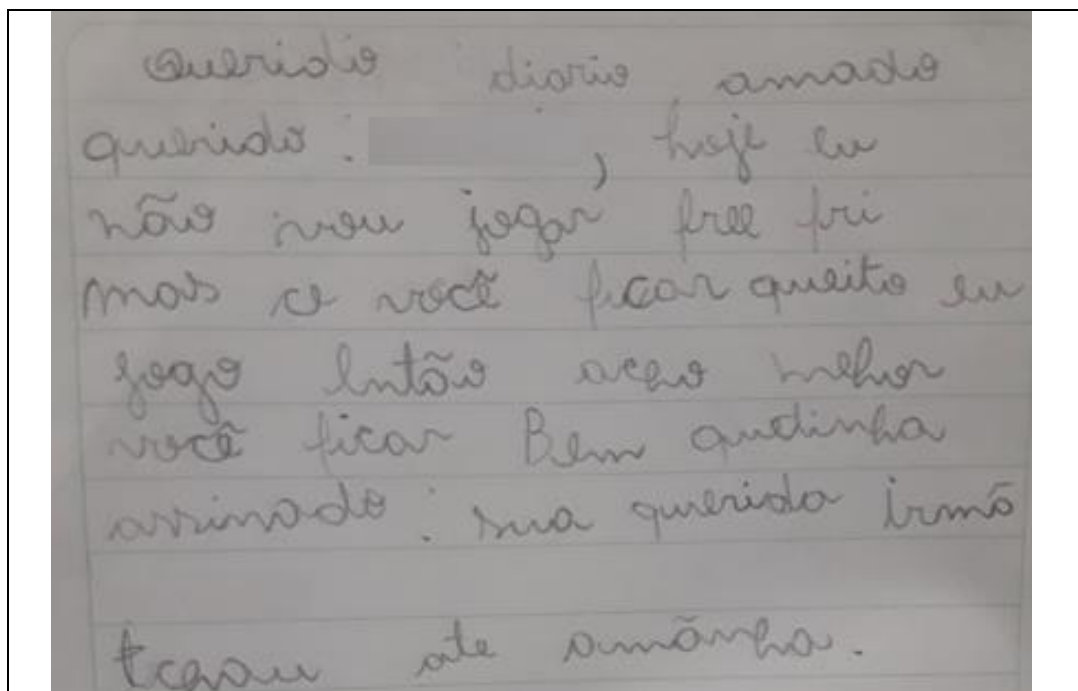 Querido diario amado
querido: , hoje eu
não vou jogar free fri
mais ce você ficar queito eu
jogo Então acho melhor
você ficar Bem quetinha
assinado: sua querida irmã
tchau ate amãnha.